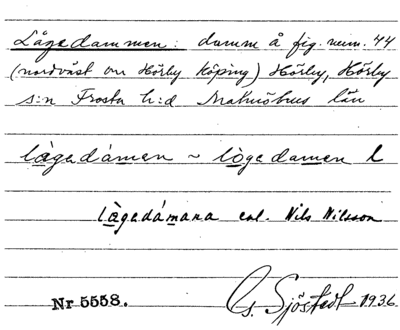 Lågedammen: damm å fig. num. 44
(nordväst om Hörby köping) Hörby, Hörby
s:n Frosta h:d Malmöhus län
lågedámen ~ lògedamen l
lågedámana enl. Nils Nilsson
Nr 5558. G. Sjöstedt 1936